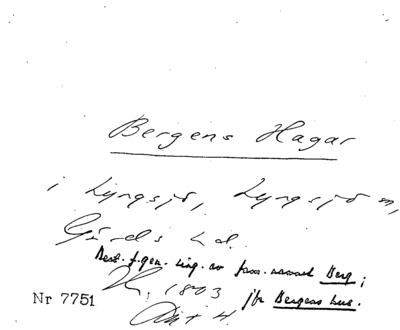 Bergens Hagar
i Lyngsjö, Lyngsjö sn,
Gärds hd.
Best. f. gen. sing. av fam.-namnet Berg;
1803 jfr Bergens hus.
Nr 7751